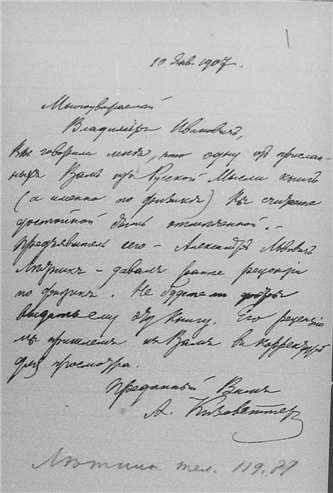 10 Янв. 1907.
Многоуважаемой
Владимiръ Ивановичъ,
Вы говорили мнѣ, что одну изъ прислан-
ныхъ Вамъ изъ Русской Мысли книгъ
(а именно по физикѣ) Вы считаете
достойной быть отмѣченной. -
Предъявитель сего - Александръ Львовичъ
- давалъ ранѣе рецензiи
по физикѣ. Не будете ли добры
выдать ему эту книгу. Его рецензiю
мы пришлемъ къ Вамъ въ корректурѣ
для просмотра.
Преданный Вамъ
А. Кизеветтеръ
тел. 119.87